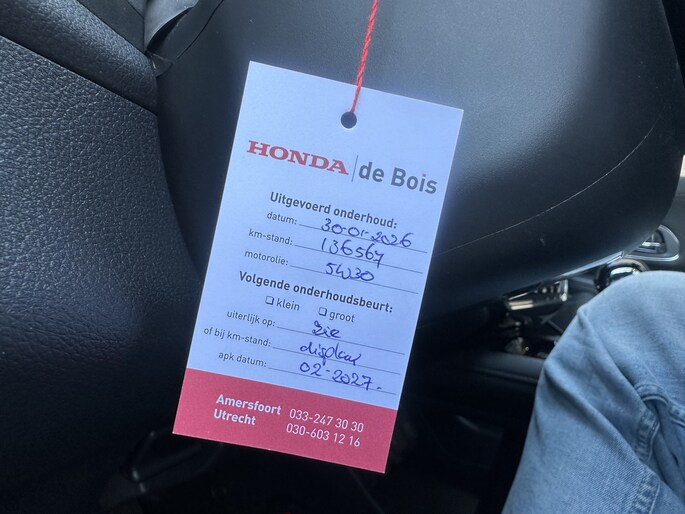 HONDA de Bois
Uitgevoerd onderhoud:
datum: 30-01-2026
km-stand: 136567
motorolie: 5W30
Volgende onderhoudsbeurt:
klein groot
uiterlijk op: zie
of bij km-stand: display
apk datum: 02-2027.
Amersfoort 033-247 30 30
Utrecht 030-603 12 16